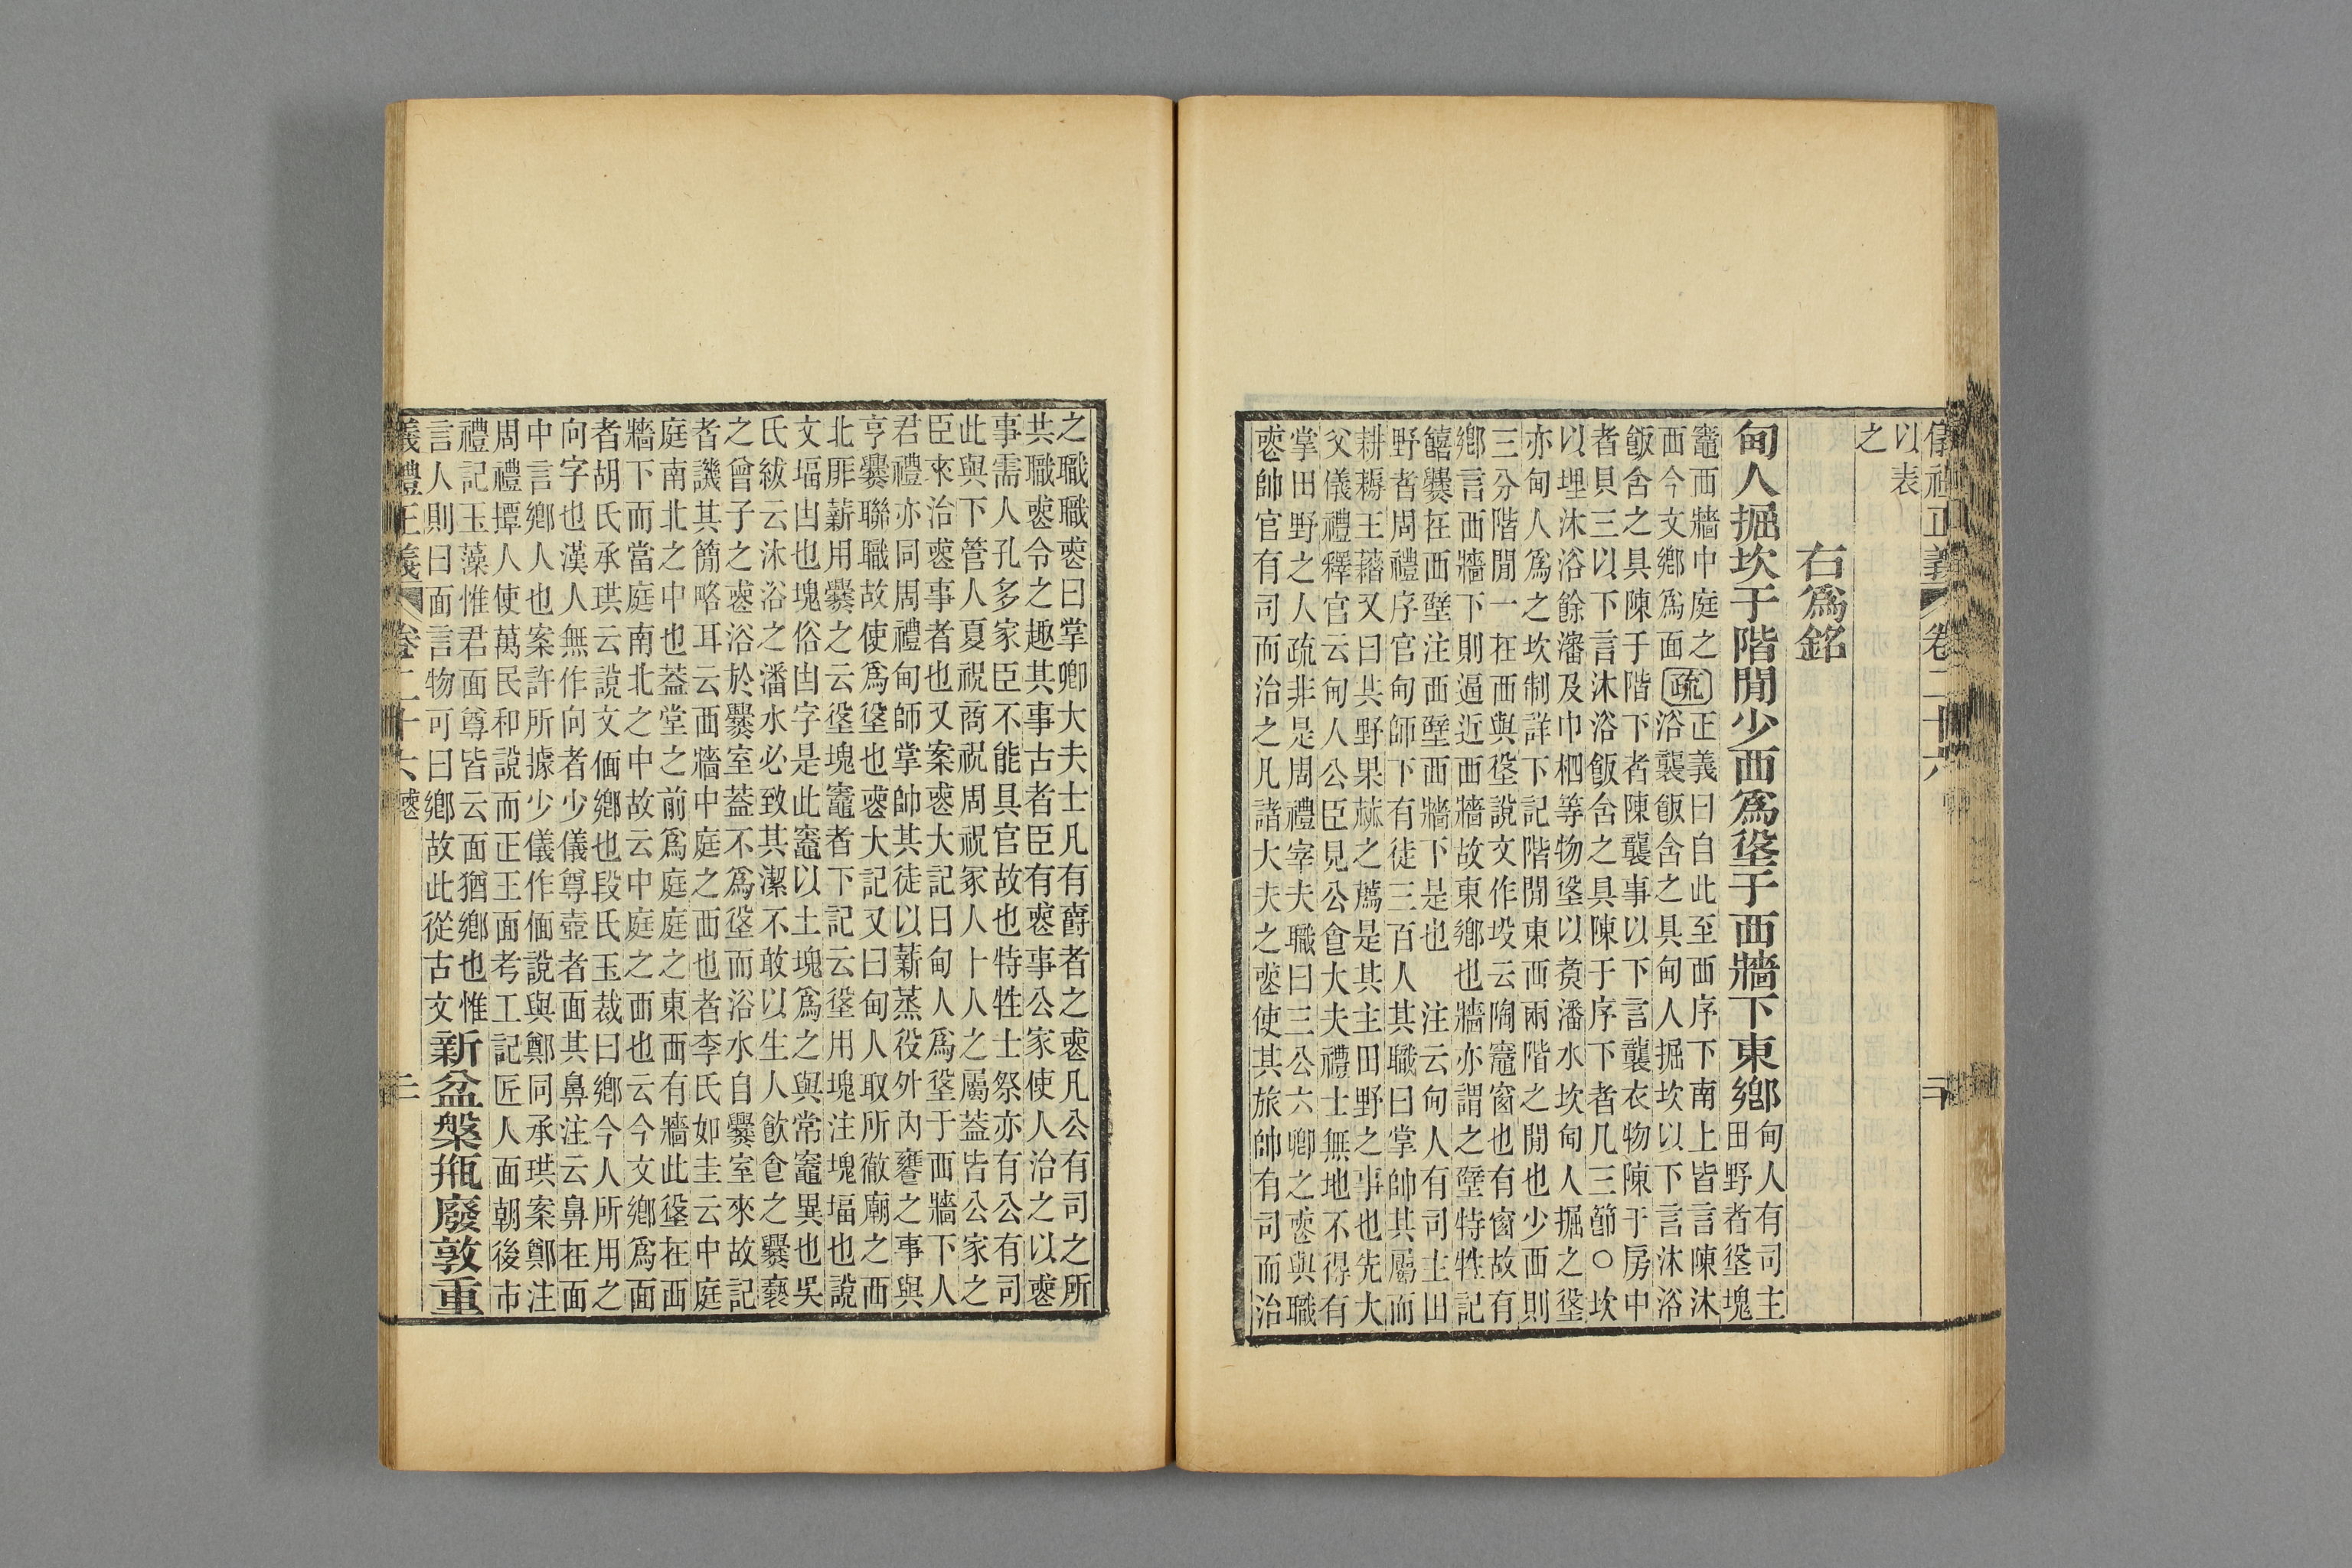 儀禮正義 卷二十六
以表
之
右爲銘
甸人掘坎于階閒少西爲垼于西牆下東鄉
甸人有司主
田野者垼塊
竈西牆中庭之
西今文鄉爲面
疏
正義曰自此至西序下南上皆言陳沐
浴襲飯含之具甸人掘坎以下言沐浴
飯含之具陳于階下者陳襲事以下言襲衣物陳于房中
者貝三以下言沐浴飯含之具陳于序下者凡三節○坎
以埋沐浴餘瀋及巾柶等物垼以煑潘水坎甸人掘之垼
亦甸人爲之坎制詳下記階閒東西兩階之閒也少西則
三分階閒一在西與垼說文作坄云陶竈窗也有窗故有
鄉言西牆下則逼近西牆故東鄉也牆亦謂之壁特牲記
饎爨在西壁注西壁西牆下是也　注云甸人有司主田
野者周禮序官甸師下有徒三百人其職曰掌帥其屬而
耕耨王藉又曰共野果蓏之薦是其主田野之事也先大
父儀禮釋官云甸人公臣見公食大夫禮士無地不得有
掌田野之人疏非是周禮宰夫職曰三公六卿之喪與職
喪帥官有司而治之凡諸大夫之喪使其旅帥有司而治
之職職喪曰掌卿大夫士凡有爵者之喪凡公有司之所
共職喪令之趣其事古者臣有喪事公家使人治之以喪
事需人孔多家臣不能具官故也特牲士祭亦有公有司
此與下管人夏祝商祝周祝冢人卜人之屬蓋皆公家之
臣來治喪事者也又案喪大記曰甸人爲垼于西牆下人
君禮亦同周禮甸師掌帥其徒以薪蒸役外內饔之事與
亨爨聯職故使爲垼也喪大記又曰甸人取所徹廟之西
北厞薪用爨之云垼塊竈者下記云垼用塊注塊堛也說
文堛凷也塊俗凷字是此竈以土塊爲之與常竈異也吳
氏紱云沐浴之潘水必致其潔不敢以生人飲食之爨褻
之曾子之喪浴於爨室蓋不爲垼而浴水自爨室來故記
者譏其簡略耳云西牆中庭之西也者李氏如圭云中庭
庭南北之中也蓋堂之前爲庭庭之東西有牆此垼在西
牆下而當庭南北之中故云中庭之西也云今文鄉爲面
者胡氏承珙云說文偭鄉也段氏玉裁曰鄉今人所用之
向字也漢人無作向者少儀尊壺者面其鼻注云鼻在面
中言鄉人也案許所據少儀作偭說與鄭同承珙案鄭注
周禮撢人使萬民和說而正王面考工記匠人面朝後市
禮記玉藻惟君面尊皆云面猶鄉也惟
言人則曰面言物可曰鄉故此從古文
新盆槃瓶廢敦重
儀禮正義 卷二十六 喪 二